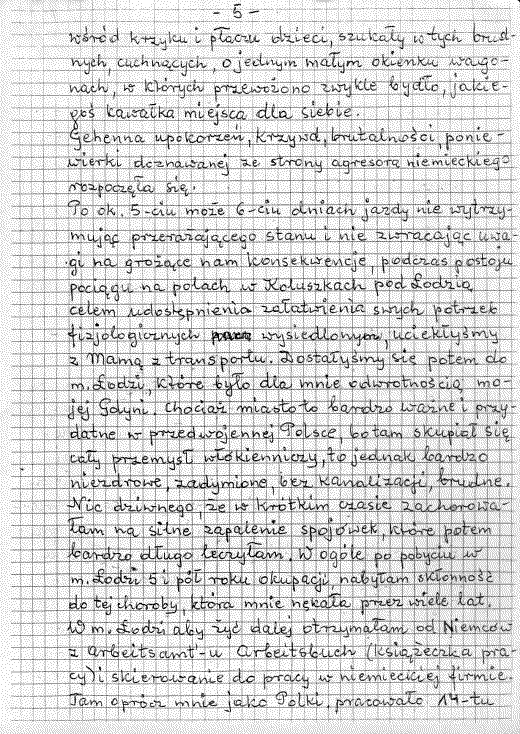 - 5 -
wśród krzyku i płaczu dzieci, szukały w tych brud-
nych, cuchnących, o jednym małym okienku wago-
nach, w których przewożono zwykle bydło, jakie-
goś kawałka miejsca dla siebie.
Gehenna upokorzeń, krzywd, brutalności, ponie-
wierki doznawanej ze strony agresora niemieckiego
rozpoczęła się.
Po ok. 5-ciu może 6-ciu dniach jazdy nie wytrzy-
mując przerażającego stanu i nie zwracając uwa-
gi na grożące nam konsekwencje, podczas postoju
pociągu na polach w Koluszkach pod Łodzią
celem udostępnienia załatwienia swych potrzeb
fizjologicznych wysiedlonym, uciekłyśmy
z Mamą z transportu. Dostałyśmy się potem do
m. Łodzi, które było dla mnie odwrotnością mo-
jej Gdyni. Chociaż miasto to bardzo ważne i przy-
datne w przedwojennej Polsce, bo tam skupiał się
cały przemysł włókienniczy, to jednak bardzo
niezdrowe, zadymione, bez kanalizacji, brudne.
Nic dziwnego, że w krótkim czasie zachorowa-
łam na silne zapalenie spojówek, które potem
bardzo długo leczyłam. W ogóle po pobyciu w
m. Łodzi 5 i pół roku okupacji nabyłam skłonność
do tej choroby, która mnie nękała przez wiele lat.
W m. Łodzi aby żyć dalej otrzymałam od Niemców
z arbeitsamt'-u Arbeitsbuch (książeczka pra-
cy) i skierowanie do pracy w niemieckiej firmie.
Tam oprócz mnie jako Polki, pracowało 14-tu